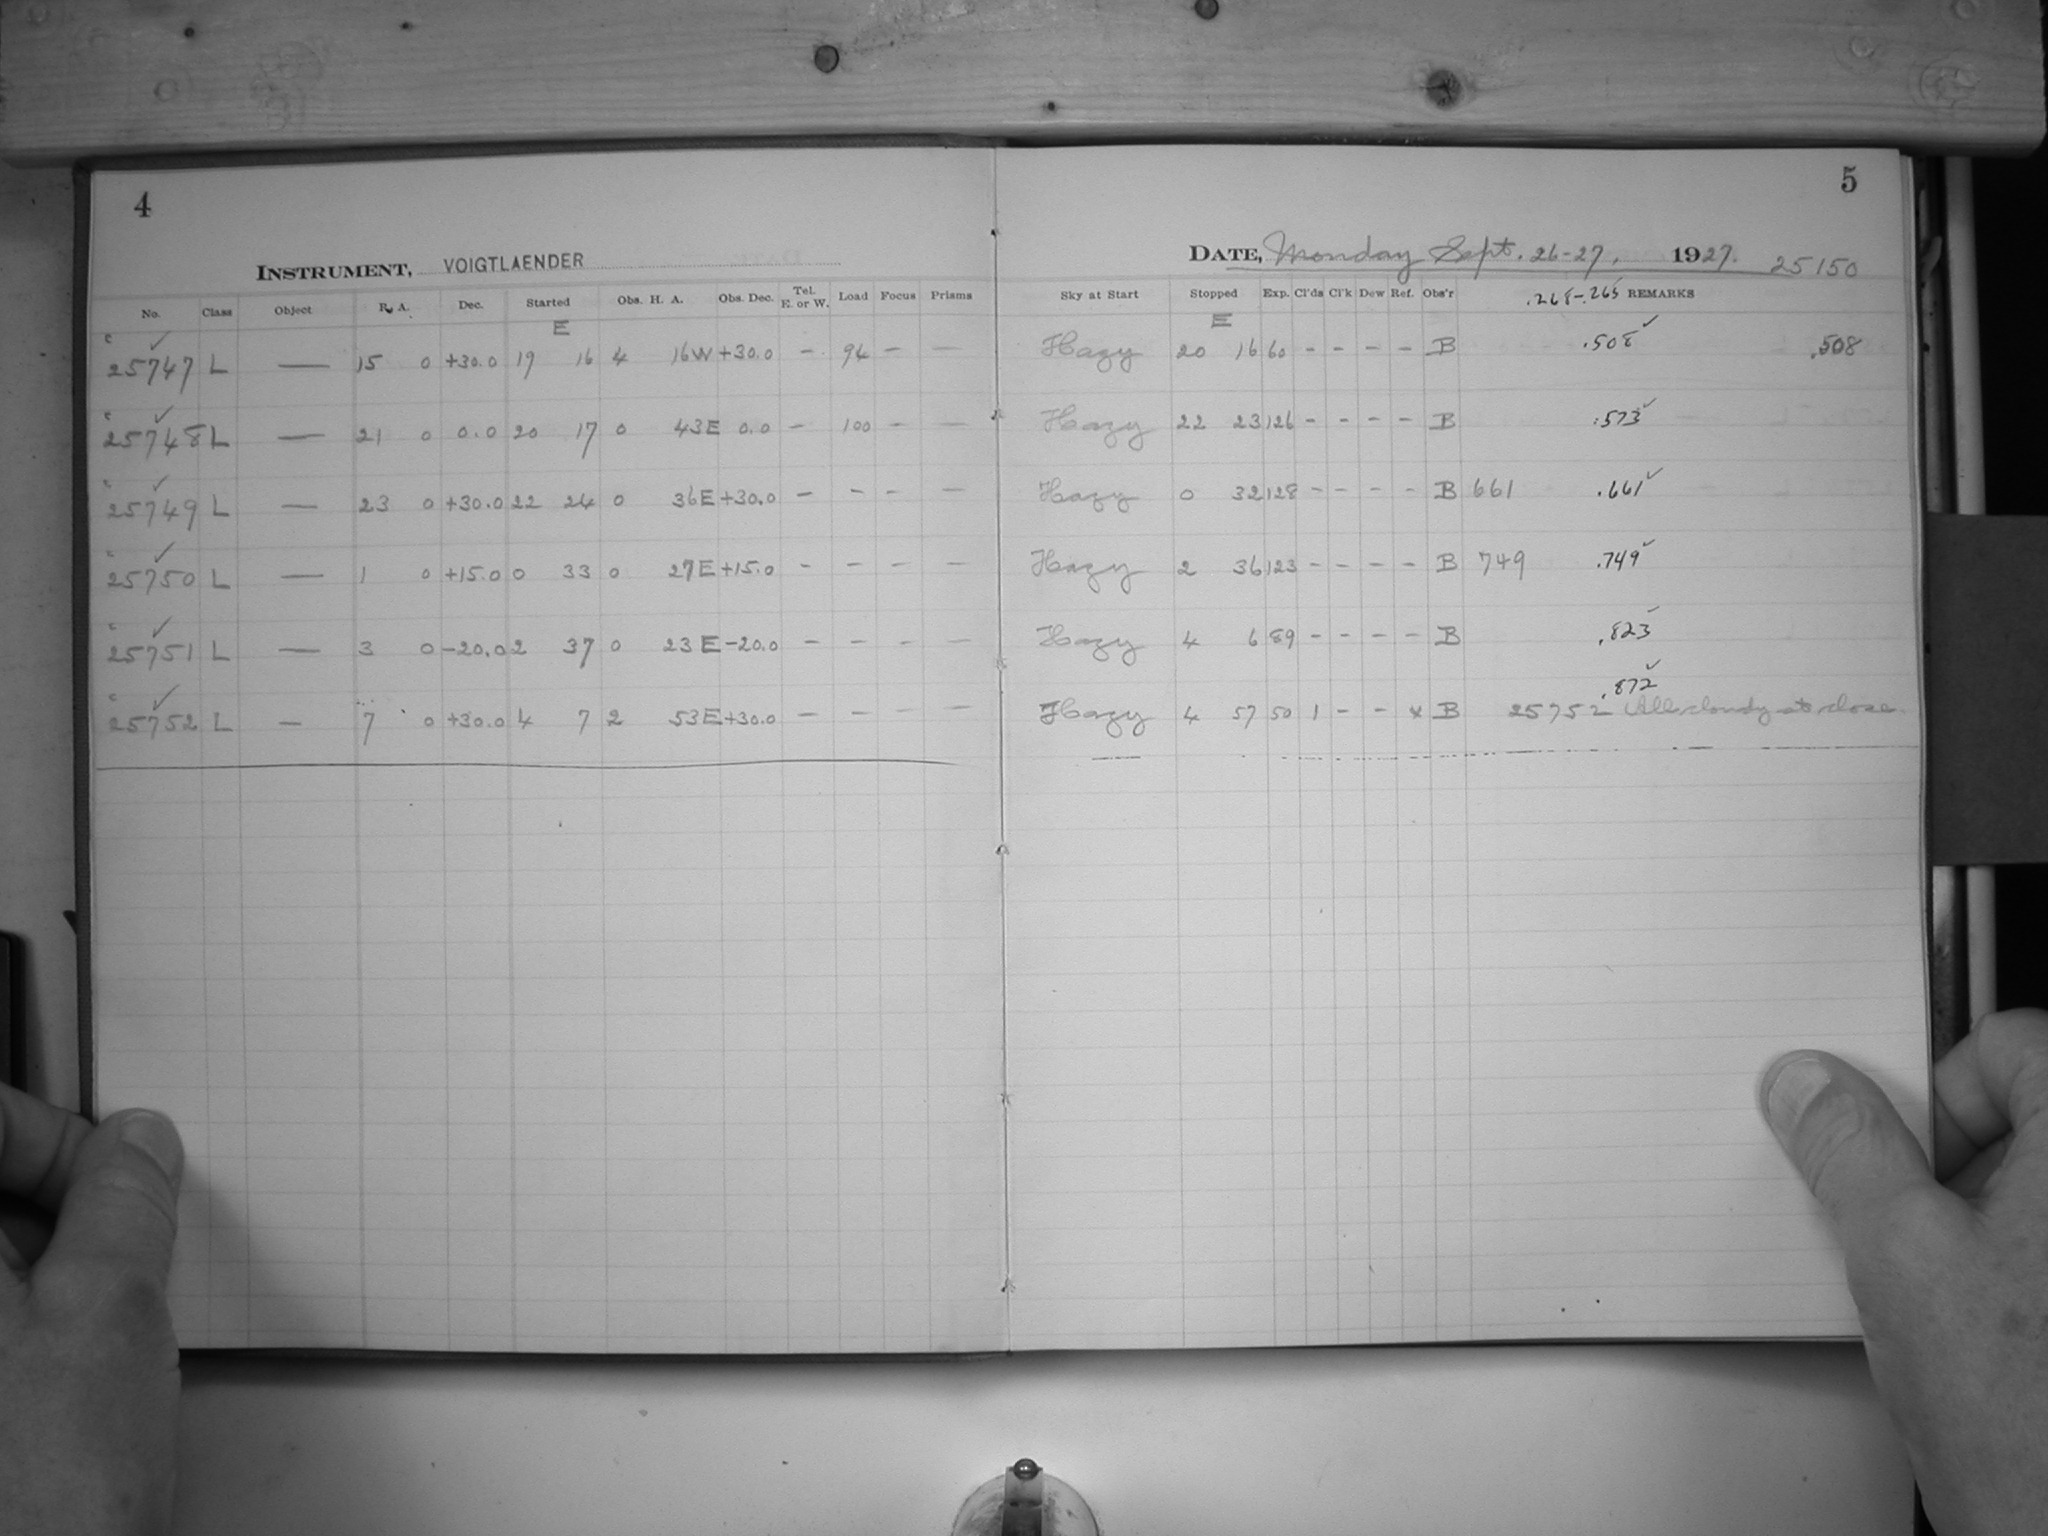 4
INSTRUMENT, VOIGTLAENDER
No. Class Object R. A. Dec. Started Obs. H. A. Obs. Dec. Tel. E. or W. Load Focus Prisms
E
c 25747 ✓ L — 15 0 +30.0 19 16 4 16W +30.0 - 94 - —
c 25748 ✓ L — 21 0 0.0 20 17 0 43E 0.0 - 100 - —
c 25749 ✓ L — 23 0 +30.0 22 24 0 36E +30.0 - - - —
c 25750 ✓ L — 1 0 +15.0 0 33 0 27E +15.0 - - - —
c 25751 ✓ L — 3 0 -20.0 2 37 0 23E -20.0 - - - —
c 25752 ✓ L — 7 0 +30.0 4 7 2 53E +30.0 - - - —
5
DATE, Monday Sept. 26-27, 1927. 25150
Sky at Start Stopped Exp. Cl'ds Cl'k Dew Ref. Obs'r .268-.265 REMARKS
E
Hazy 20 16 60 - - - - B .508 ✓ .508
Hazy 22 23 126 - - - - B .573 ✓
Hazy 0 32 128 - - - - B 661 .661 ✓
Hazy 2 36 123 - - - - B 749 .749 ✓
Hazy 4 6 89 - - - - B .823 ✓
.872 ✓
Hazy 4 57 50 1 - - x B 25752 All cloudy at close.